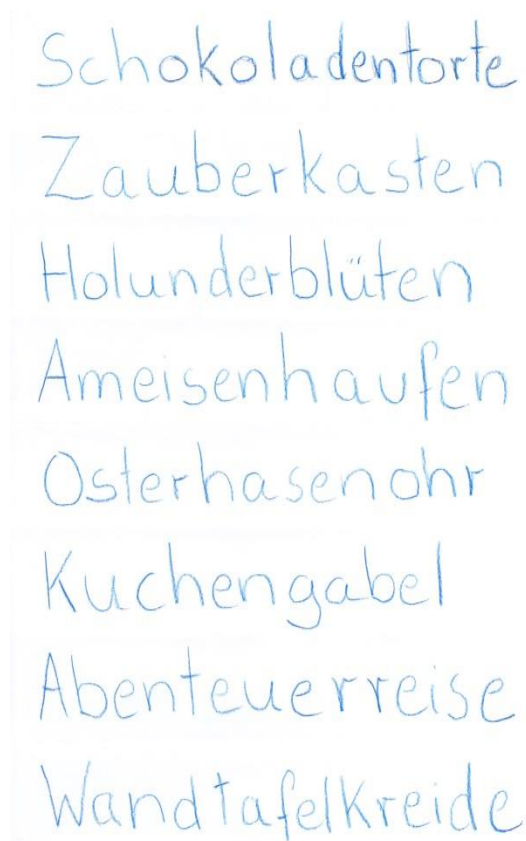 Schokoladentorte
Zauberkasten
Holunderblüten
Ameisenhaufen
Osterhasenohr
Kuchengabel
Abenteuerreise
Wandtafelkreide